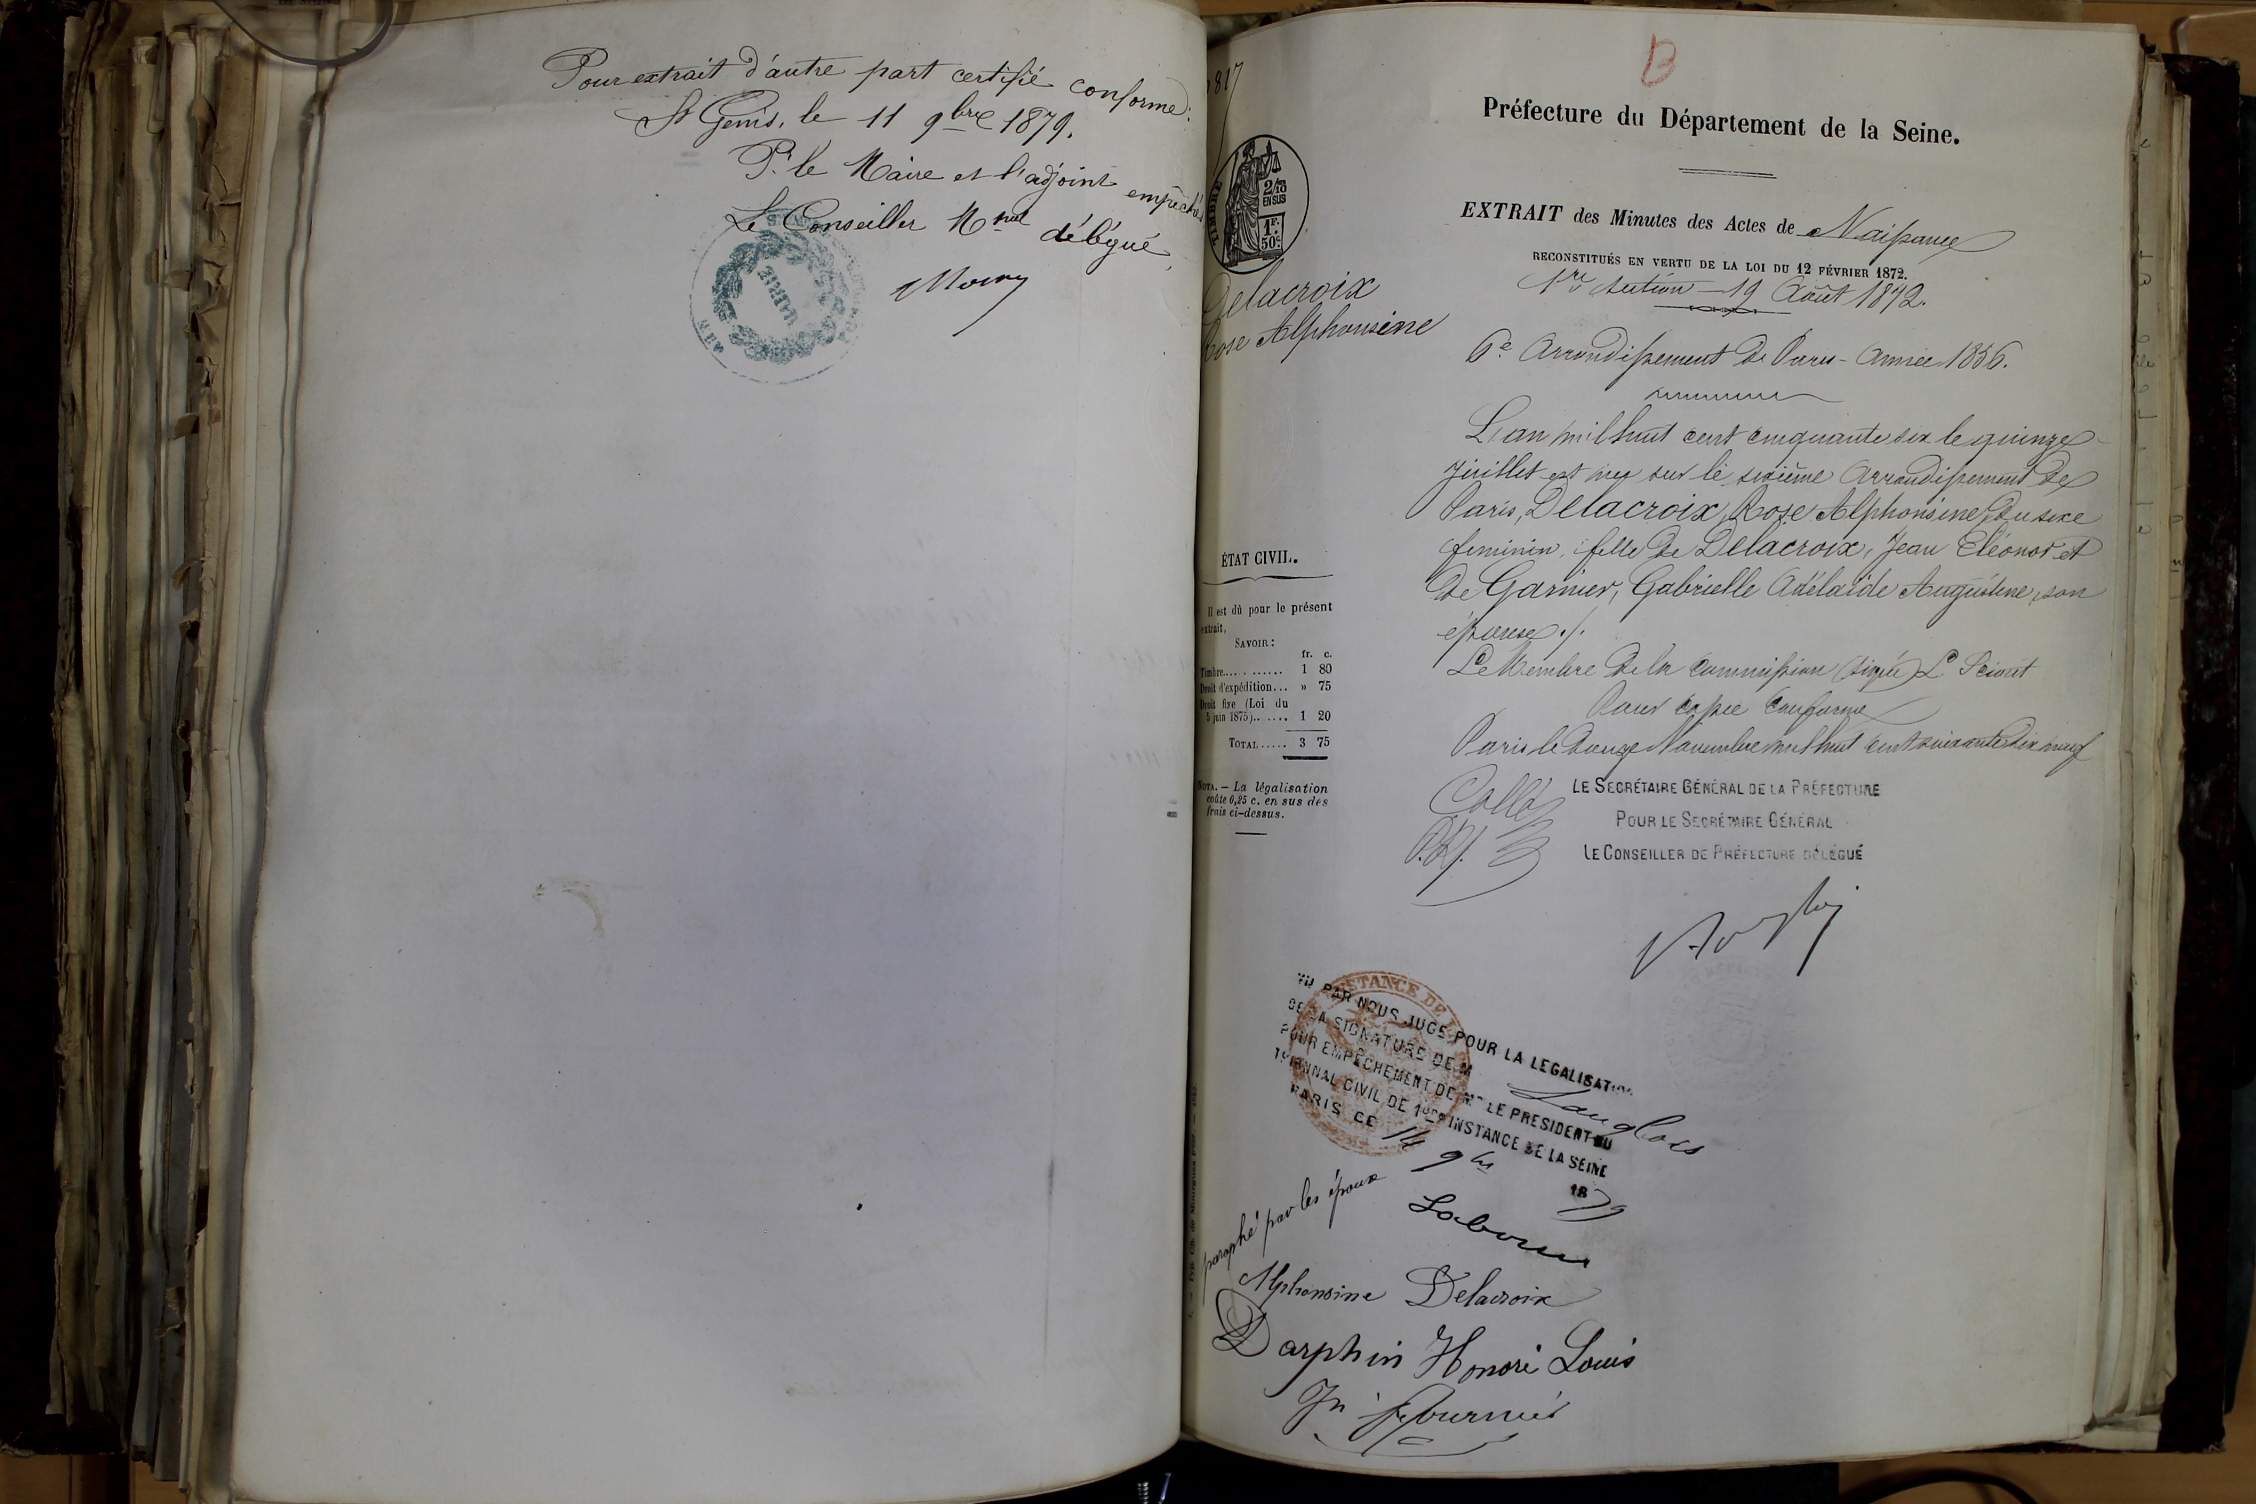 Pour extrait d'autre part certifié conforme:
St Genis, le 11 9bre 1879.
Pr. le Maire et l'adjoint empêchés
Le Conseiller Mpal délégué,
817
B
Préfecture du Département de la Seine.
TIMBRE
2/10
EN SUS
1F.
50c
EXTRAIT des Minutes des Actes de Naissance
RECONSTITUÉS EN VERTU DE LA LOI DU 12 FÉVRIER 1872.
1re section - 19 Août 1872.
Delacroix
Rose Alphonsine
6e Arrondissement de Paris - Année 1856.
L'an mil huit cent cinquante six le quinze
Juillet est née sur le sixième Arrondissement de
Paris, Delacroix, Rose Alphonsine, du sexe
feminin, fille de Delacroix, Jean Eléonor et
de Garnier, Gabrielle Adélaïde Augustine, son
épouse ./.
Le Membre de la Commission (signé) L Sciout
Pour copie conforme
Paris le douze Novembre mil huit cent soixante dix neuf
ÉTAT CIVIL.
Il est dû pour le présent
extrait,
SAVOIR:
fr. c.
Timbre.......... 1 80
Droit d'expédition... » 75
Droit fixe (Loi du
5 juin 1875)....... 1 20
TOTAL..... 3 75
NOTA. — La légalisation
coûte 0,25 c. en sus des
frais ci-dessus.
Collé
LE SECRÉTAIRE GÉNÉRAL DE LA PRÉFECTURE
POUR LE SECRÉTAIRE GÉNÉRAL
LE CONSEILLER DE PRÉFECTURE DÉLÉGUÉ
VU PAR NOUS JUGE POUR LA LEGALISATION
DE LA SIGNATURE DE M Langlois
POUR EMPÊCHEMENT DE Mr LE PRESIDENT DU
TRIBUNAL CIVIL DE 1ere INSTANCE DE LA SEINE
PARIS CE 14 9bre 1879
paraphé par les époux
Alphonsine Delacroix
Darphin Honoré Louis